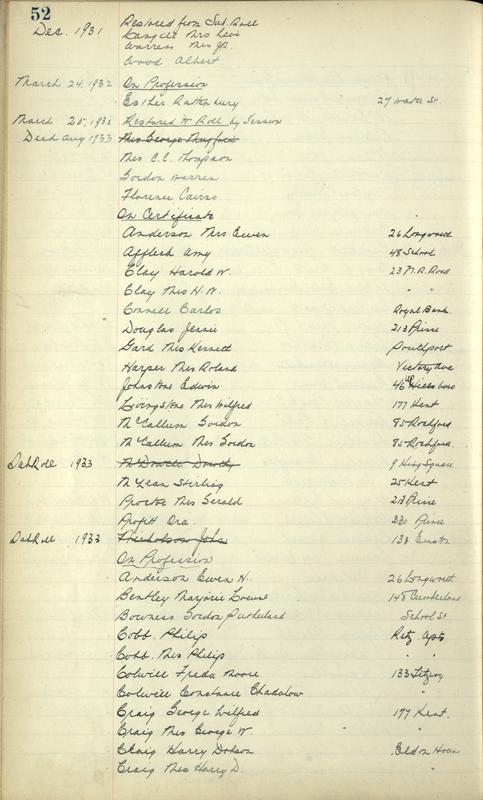 52
Dec. 1931 Restored from Sub. Roll
Mrs Levi
Warren Mrs
Wood Albert
March 24, 1932 On Profession
Esther Rattenbury 27 Water St.
March 25, 1932 Restored to Roll by Session
Dead Aug 1933 Mrs George Mugford
Mrs C.C. Thompson
Gordon Warren
Florence Cairns
On Certificate
Anderson Mrs Ewen 26 Longworth
Affleck Amy 48 School
Clay Harold W. 23 M.P. Road
Clay Mrs H.W. " "
Connell Carlos Royal Bank
Douglas Jennie 213 Prince
Gard Mrs Kenneth Southport
Harper Mrs Roland Victory Ave
Johnstone Edwin 46 Hillsboro
Livingstone Mrs Wilfred 177 Kent
McCallum Gordon 85 Rochford
McCallum Mrs Gordon 85 Rochford
Sub Roll 1933 McDowell Dorothy 9 King Square
McLean Stirling 25 Kent
Proctor Mrs Gerald 213 Prince
Profitt Ora. 220 Prince
Sub Roll 1933 Nicholson John 138 Euston
On Profession
Anderson Ewen H. 26 Longworth
Bentley Marjorie Louise 148 Cumberland
Bowness Gordon Sutherland School St
Cobb. Philip Ritz Apts
Cobb. Mrs Philip " "
Colwill Freda Moore 133 Fitzroy
Colwill Constance "
Craig George Wilfred 177 Kent.
Craig Mrs George W. " "
Craig Harry Dobson Eldon House
Craig Mrs Harry D. "